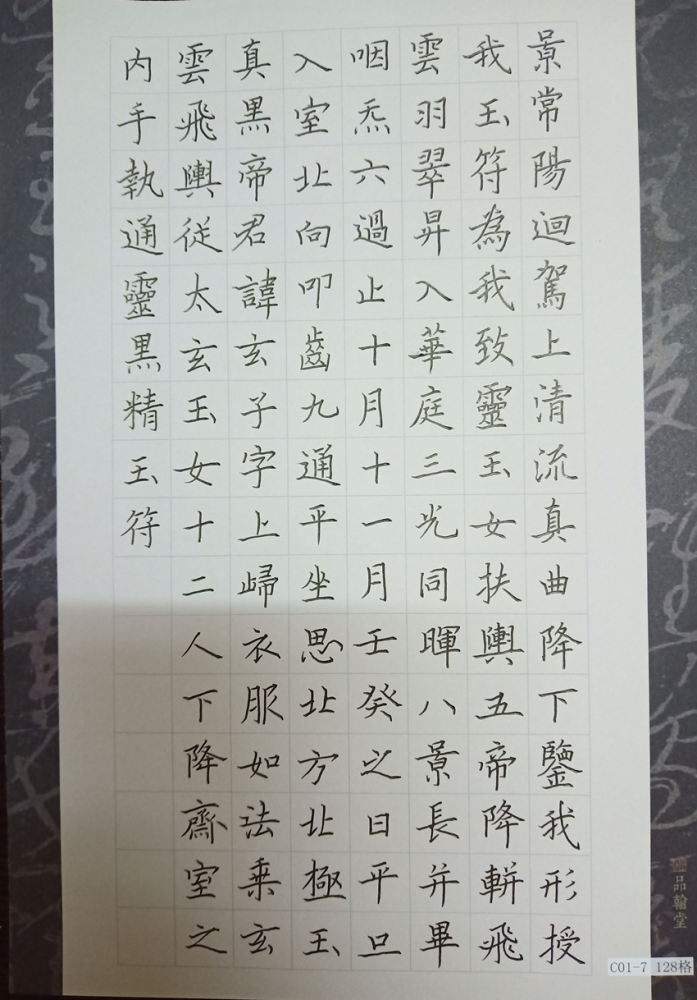 景常陽迴駕上清流真曲降下鑒我形授
我玉符為我致靈玉女扶輿五帝降軿飛
雲羽翠昇入華庭三光同暉八景長并畢
咽炁六過止十月十一月壬癸之日平旦
入室北向叩齒九通平坐思北方北極玉
真黑帝君諱玄子字上歸衣服如法乗玄
雲飛輿從太玄玉女十二人下降齋室之
內手執通靈黑精玉符
品翰堂
C01-7 128格